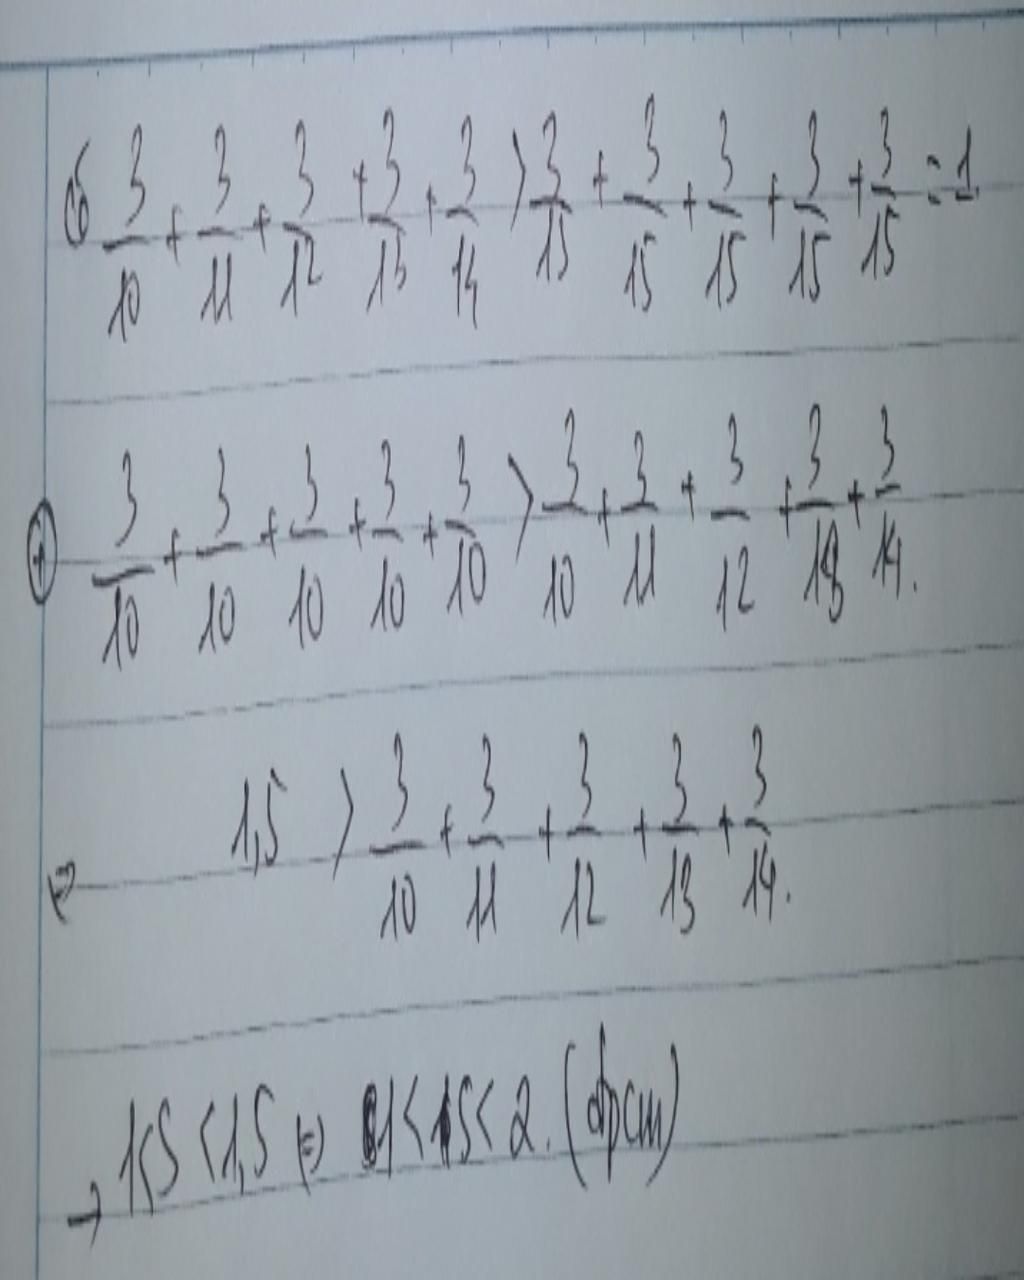 có 3/10 + 3/11 + 3/12 + 3/13 + 3/14 > 3/15 + 3/15 + 3/15 + 3/15 + 3/15 = 1.
(+) 3/10 + 3/10 + 3/10 + 3/10 + 3/10 > 3/10 + 3/11 + 3/12 + 3/13 + 3/14.
(=) 1,5 > 3/10 + 3/11 + 3/12 + 3/13 + 3/14.
→ 1<S<1,5 (=) 1<S<2. (đpcm)